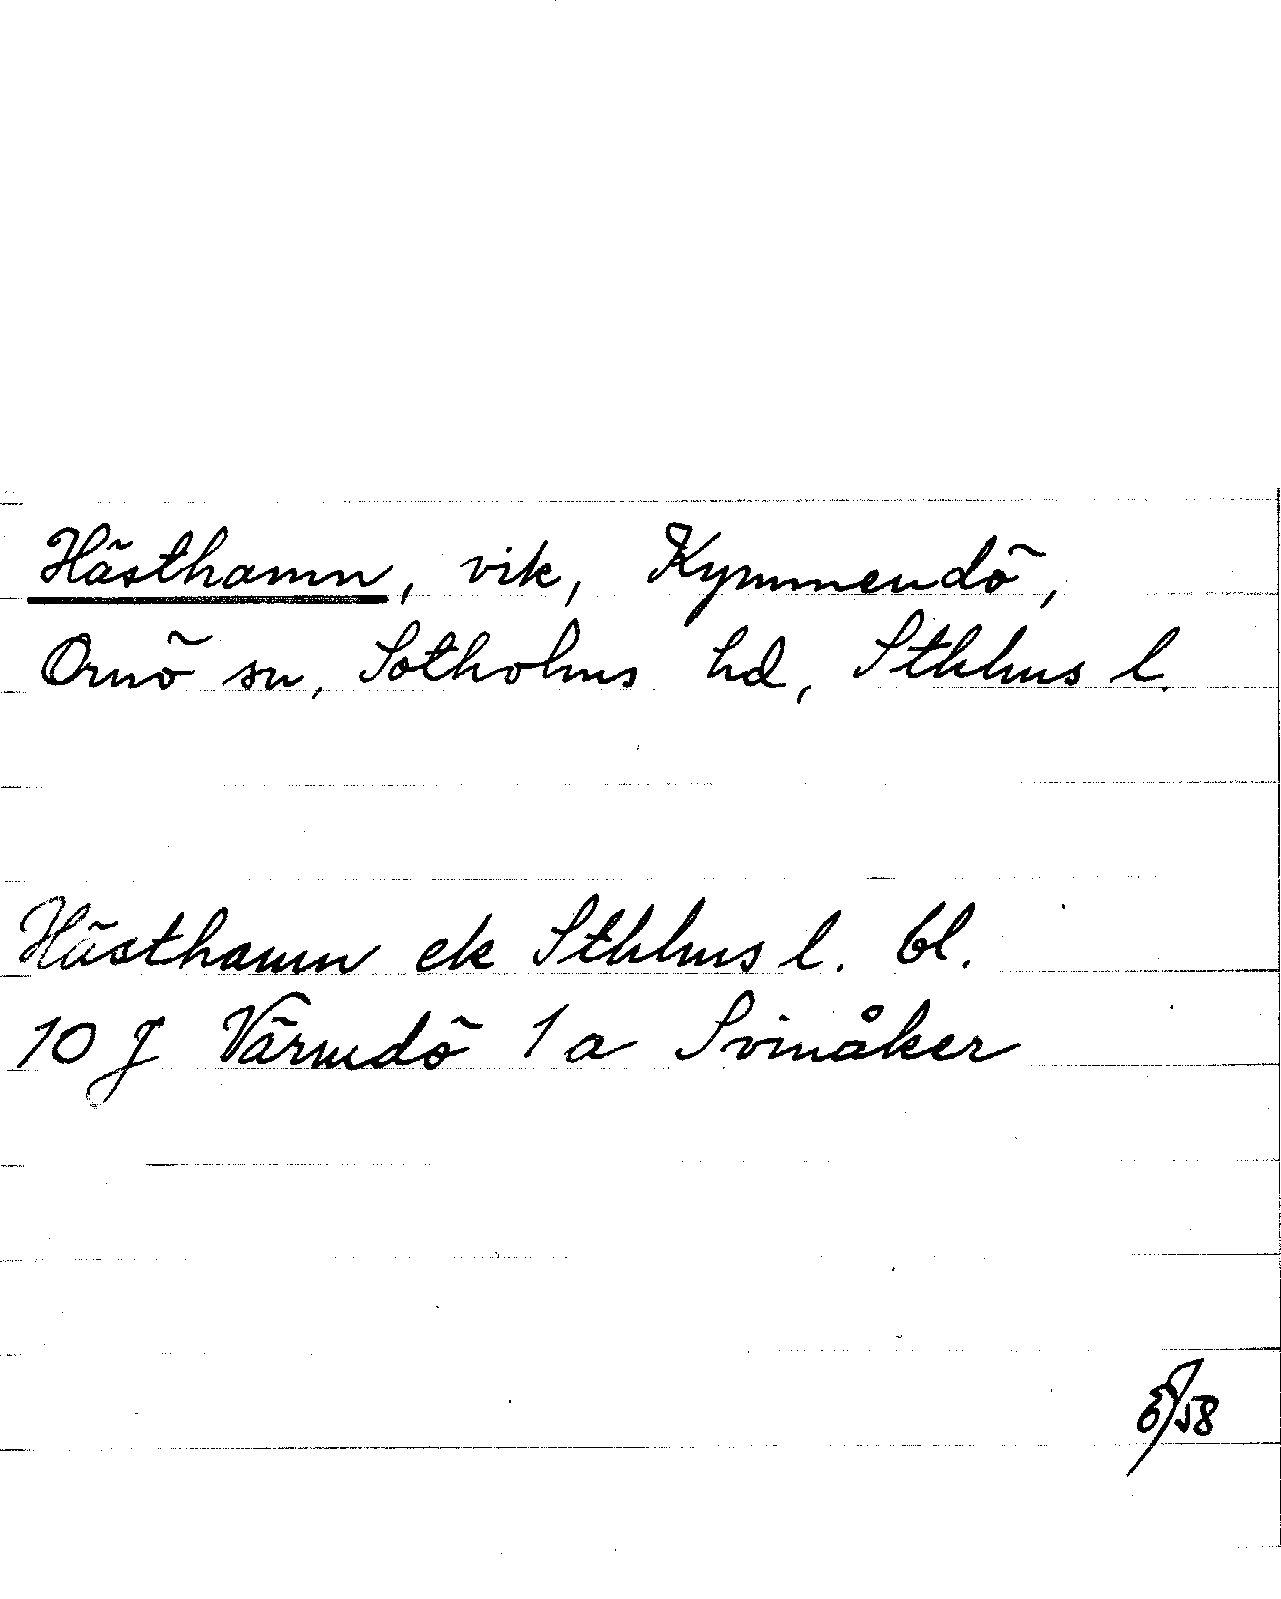 Hästhamn, vik, Kymmendö,
Ornö sn, Sotholms hd, Sthlms l.
Hästhamn ek Sthlms l. bl.
10 J Värmdö 1 a Svinåker